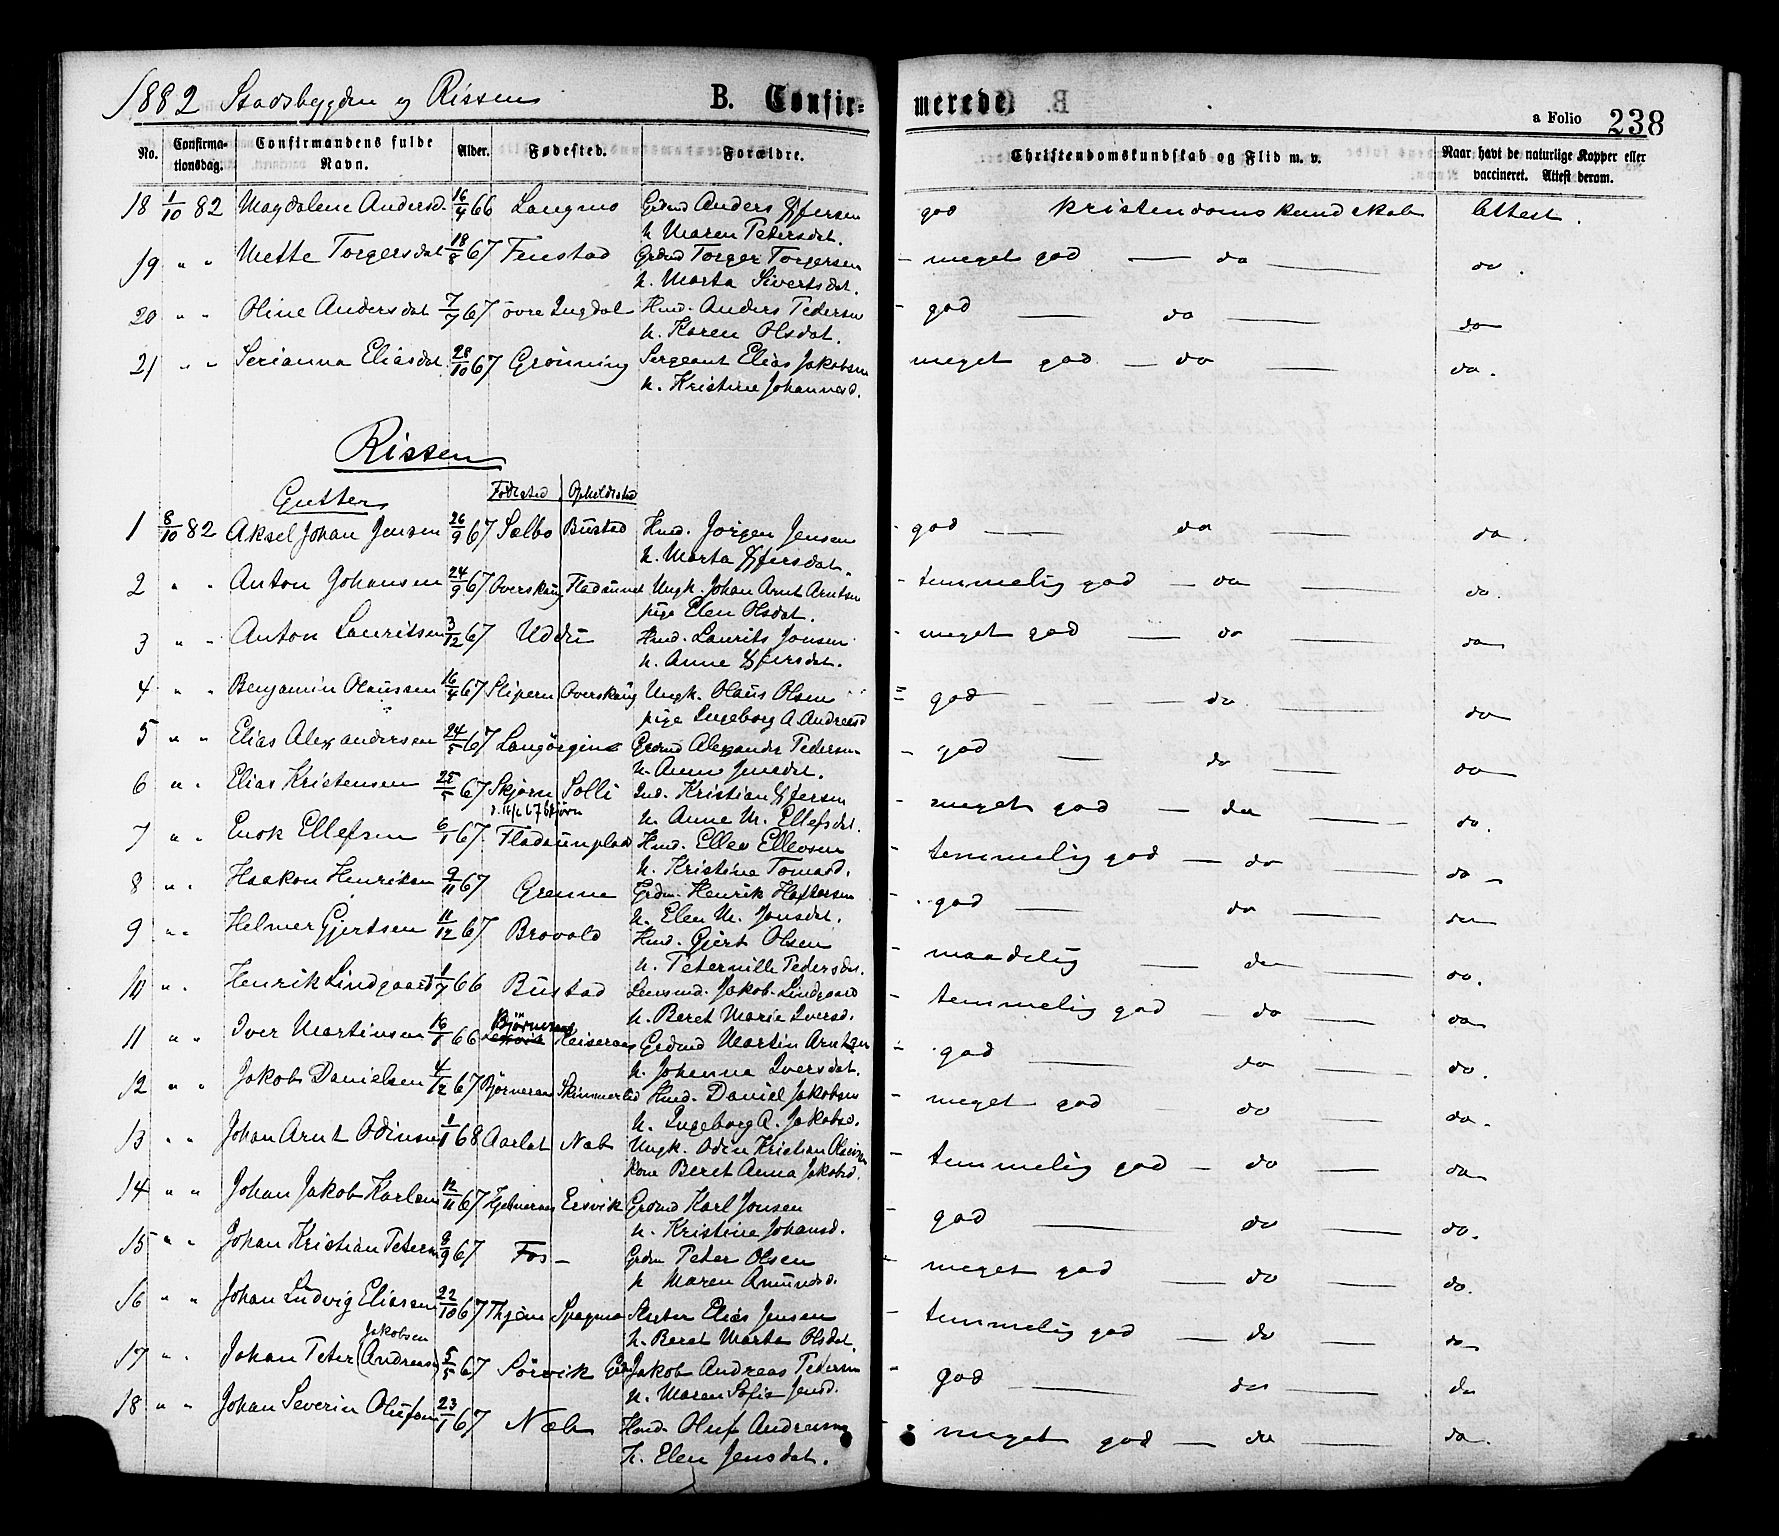 1882 Stadsbygden og Rissen B. Confir= merede. a Folio 238
No. Confirma-tionsdag. Confirmandens fulde Navn. Alder. Fødested. Forældre. Christendomskundskab og Flid m. v. Naar havt de naturlige Kopper eller vaccineret. Attest derom.
18 1/10 82 Magdalene Andersd. 16/4 66 Langmo Grdmd Anders god kristendomskundskab Attest.
h. Maren Petersdat.
19 " " Mette Torgersdat 18/8 67 Fenstad Grdmd Torger Torgersen - meget god — do — do.
h. Marta Sivertsdat.
20 " " Oline Andersdat 7/7 67 övre Ingdal Hmd. Anders Pedersen - god — do — do
h. Karen Olsdat.
21 " " Serianna Eliasdat. 28/10 67 Grönning Sergeant Elias Jakobsen meget god — do do.
h. Kristine Johannesd.
Rissen
Gutter Födested Opholdssted
1 8/10 82 Aksel Johan Jensen 26/9 67 Sælbo Bustad Hmd. Jörgen Jensen - god — do — do.
h. Marta
2 " " Anton Johansen 24/9 67 Overskaug Ungk. Johan Arnt Arntsen - temmelig god — do — do.
pige Elen Olsdat.
3 " " Anton Lauritsen 3/12 67 Uddu Hmd. Laurits Jonsen - meget god — do — do
h. Anne
4 " " Benjamin Olaussen 16/4 67 Slipern Overskaug Ungk. Olaus Olsen = god — do — do
pige Ingeborg A. Andreasd
5 " " Elias Alexandersen 24/5 67 Grdmd Alexander Pedersen - god — do — do
h. Anne
6 " " Elias Kristensen 25/5 67 Skjörn Solli Ind. Kristian - meget god — do — do.
h. Anne M. Ellefsdat.
7 " " Enok Ellefsen 6/1 67. Hmd. Ellev Ellevsen - temmelig god — do — do -
h. Kristine Tomasd.
8 " " Haakon Henriksen 9/11 67 Grenne Grdm. Henrik - god — do — do
h. Elen M. Jonsdat.
9 " " Helmer Gjertsen 11/12 67 Brovold Hmd. Gjert Olsen - maadelig — do — do.
h. Peternille Pedersdat.
10 " " Henrik Lindgaard 1/7 66 Bustad Lensmd. Jakob Lindgaard - temmelig god — do — do
h. Beret Marie Iversd.
11 " " Iver Martinsen 16/1 66 Grdmd Martin Arntsen - god — do — do.
h. Johanna Iversdat.
12 " " Jakob Danielsen 4/12 67 Björneraas Hmd. Daniel Jakobsen - meget god — do — do.
h. Ingeborg A. Jakobsd.
13 " " Johan Arnt Odinsen 1/1 68 Aarlot Næb Ungk. Odin Kristian - temmelig god — do — do
kone Beret Anna Jakobsd.
14 " " Johan Jakob Karlsen 12/11 67 Ersvik Grdmd Karl Jonsen - god — do do.
h. Kristine Johansd.
15 " " Johan Kristian Petersen 8/9 67 Fos - Grdm Peter Olsen - meget god — do — do.
h Maren Amundsd.
16 " " Johan Ludvig Eliasen 22/10 67 Elias Jensen - temmelig god — do — do
h. Beret Marta Olsdat.
17 " " Johan Peter (Andreas) Jakobsen 5/5 67 Sörvik Grdm Jakob Andreas Pedersen - god — do — do
h. Maren Sofia Jensd.
18 " " Johan Severin Olufsen 23/1 67 Næb Hmd. Oluf Andreassen - meget god — do — do.
h. Elen Jensdat.